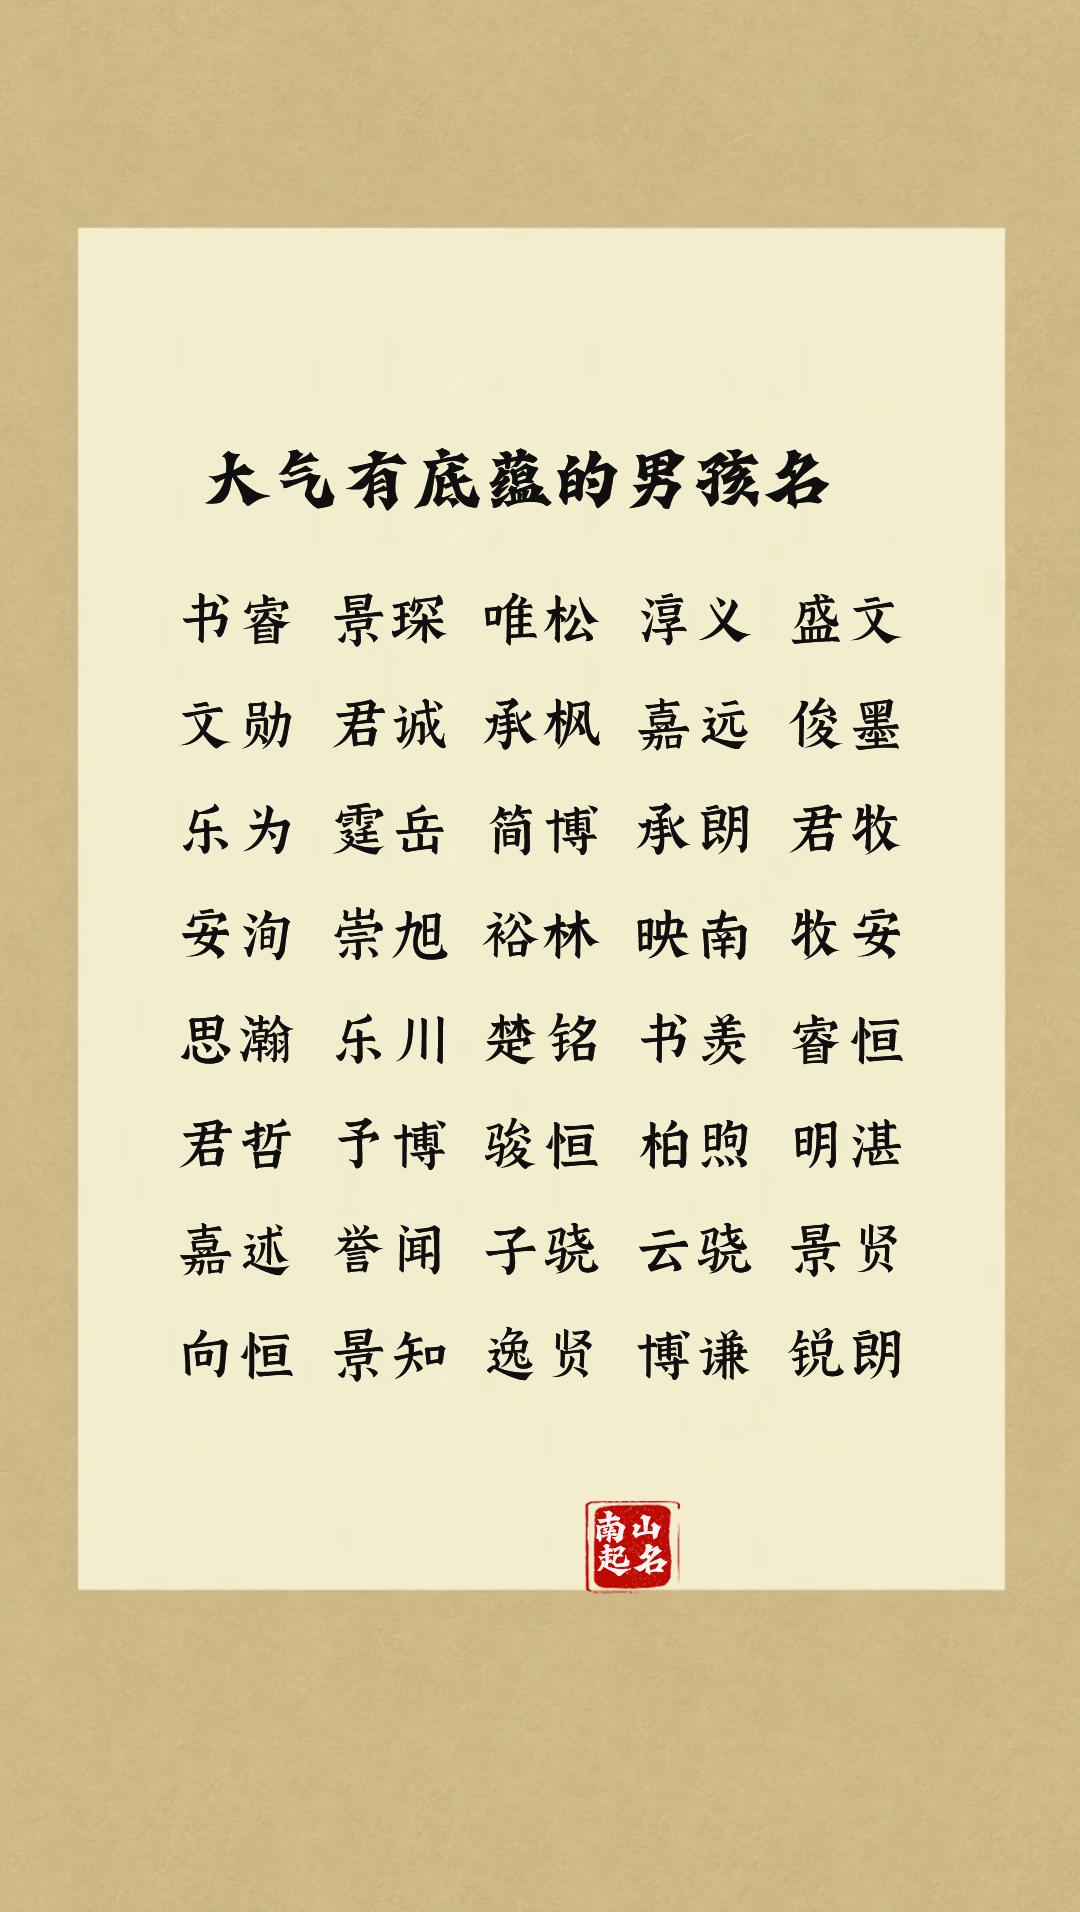 大气有底蕴的男孩名
书睿 景琛 唯松 淳义 盛文
文勋 君诚 承枫 嘉远 俊墨
乐为 霆岳 简博 承朗 君牧
安洵 崇旭 裕林 映南 牧安
思瀚 乐川 楚铭 书羡 睿恒
君哲 予博 骏恒 柏煦 明湛
嘉述 誉闻 子骁 云骁 景贤
向恒 景知 逸贤 博谦 锐朗
南山
起名